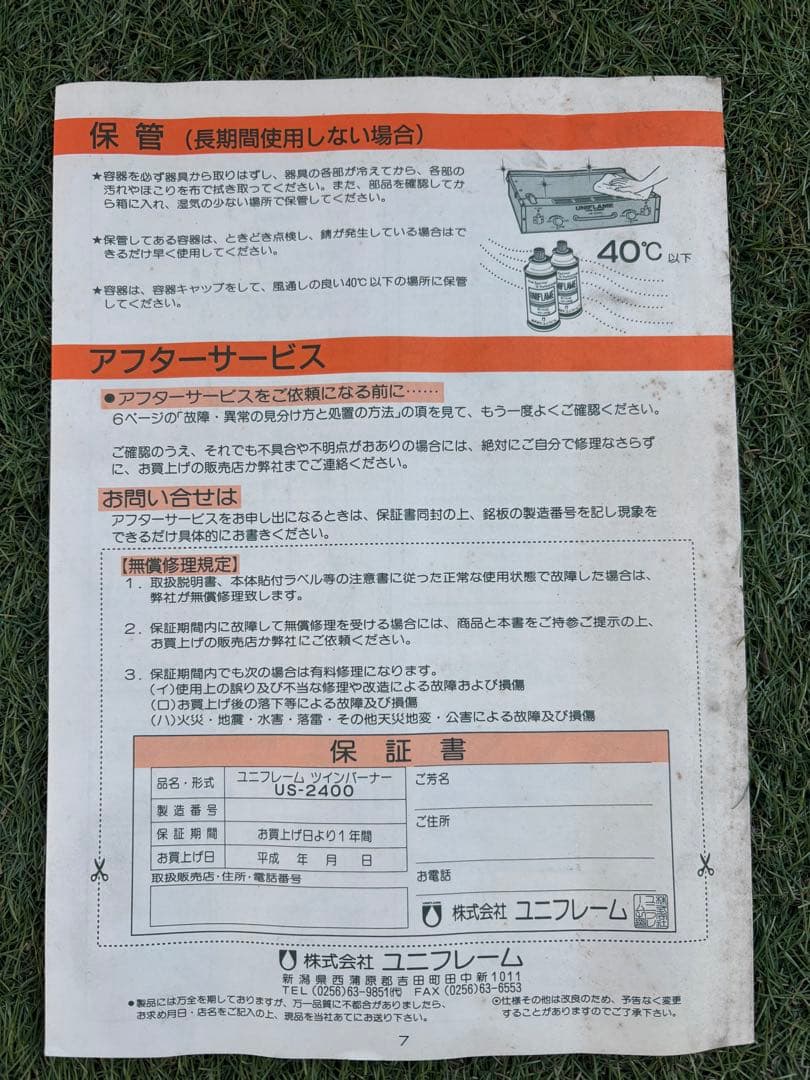 保管（長期間使用しない場合）
★容器を必ず器具から取りはずし、器具の各部が冷えてから、各部の
汚れやほこりを布で拭き取ってください。また、部品を確認してか
ら箱に入れ、湿気の少ない場所で保管してください。
★保管してある容器は、ときどき点検し、錆が発生している場合はで
きるだけ早く使用してください。
★容器は、容器キャップをして、風通しの良い40℃以下の場所に保管
してください。
UNIFLAME
40℃以下
UNIFLAME
アフターサービス
●アフターサービスをご依頼になる前に……
6ページの「故障・異常の見分け方と処置の方法」の項を見て、もう一度よくご確認ください。
ご確認のうえ、それでも不具合や不明点がおありの場合には、絶対にご自分で修理なさらず
に、お買上げの販売店か弊社までご連絡ください。
お問い合せは
アフターサービスをお申し出になるときは、保証書同封の上、銘板の製造番号を記し現象を
できるだけ具体的にお書きください。
【無償修理規定】
1．取扱説明書、本体貼付ラベル等の注意書に従った正常な使用状態で故障した場合は、
弊社が無償修理致します。
2．保証期間内に故障して無償修理を受ける場合には、商品と本書をご持参ご提示の上、
お買上げの販売店か弊社にご依頼ください。
3．保証期間内でも次の場合は有料修理になります。
（イ）使用上の誤り及び不当な修理や改造による故障および損傷
（ロ）お買上げ後の落下等による故障及び損傷
（ハ）火災・地震・水害・落雷・その他天災地変・公害による故障及び損傷
保証書
品名・形式 ユニフレーム ツインバーナー
US-2400
製造番号
保証期間 お買上げ日より1年間
お買上げ日 平成 年 月 日
取扱販売店・住所・電話番号
ご芳名
ご住所
お電話
株式会社 ユニフレーム
株式会社 ユニフレーム
新潟県西蒲原郡吉田町田中新1011
TEL（0256）63-9851㈹ FAX（0256）63-6553
●製品には万全を期しておりますが、万一品質に不都合がありましたら、
お求め月日・店名をご記入の上、現品を当社あてにお送り下さい。
⊙仕様その他は改良のため、予告なく変更
することがありますのでご了承下さい。
7